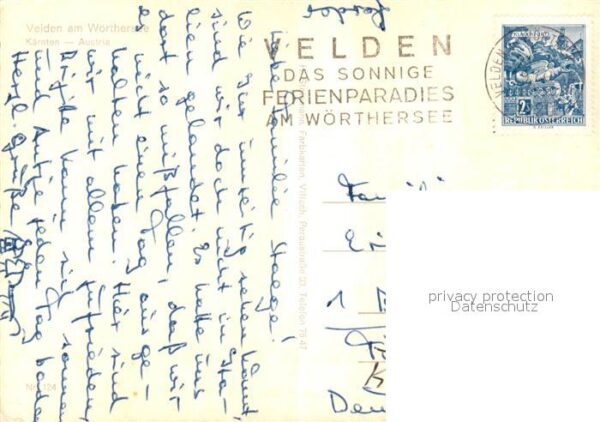 Velden am Wörthersee
Kärnten — Austria
VELDEN
DAS SONNIGE
FERIENPARADIES
AM WÖRTHERSEE
REPUBLIK ÖSTERREICH
Liebe Familie
Wie Sie umseitig sehen könnt,
sind wir doch nicht in Ita-
lien gelandet. Es hatte uns
dort so mißfallen, daß wir
es nicht einen Tag ausge-
halten haben. Hier sind
wir mit allem zufrieden.
Brigitte kann sich sonnen
und Antje jeden Tag baden
Herzl. Grüße
Farbkarten, Villach, Perau­straße 23, Telefon 75 47
Nr. 124
privacy protection
Datenschutz